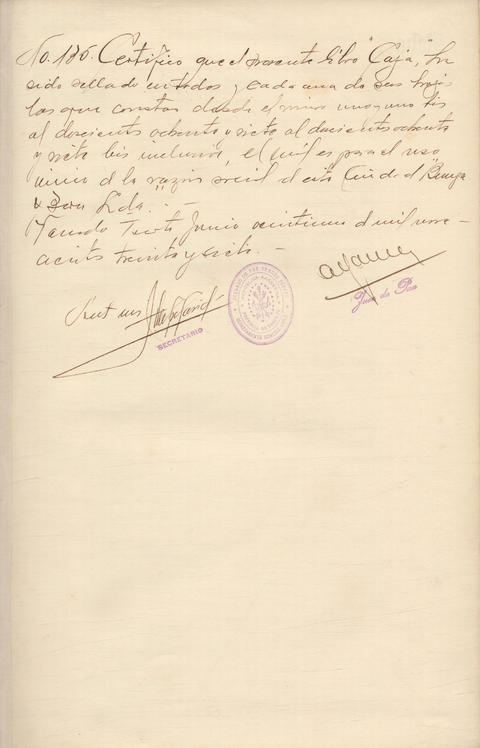 No. 186. Certifico que el presente libro "Caja", ha
sido sellado en todas y cada una de sus hojas
las que constan desde el número uno y uno bis
al doscientos ochenta y siete al doscientos ochenta
y siete bis inclusive, el cual es para el uso
único de la razón social de esta Ciudad "Bunge
& Born Lda." -
Venado Tuerto Junio veintiuno de mil nove-
cientos treinta y siete. -
Ante mí
SECRETARIO
Juez de Paz